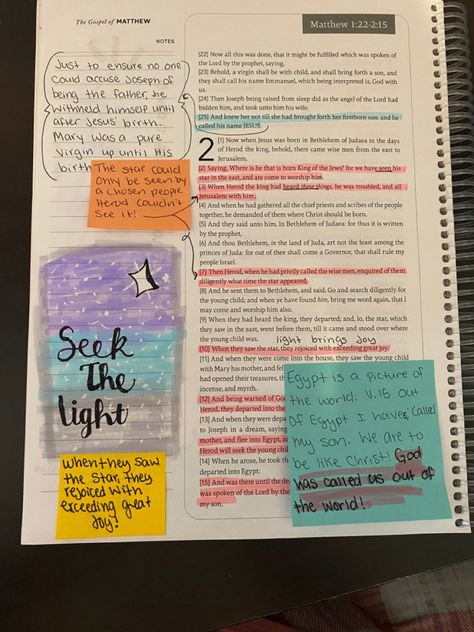 The Gospel of MATTHEW
Matthew 1:22-2:15
NOTES
Just to ensure no one
could accuse Joseph of
being the father, he
withheld himself until
after Jesus' birth.
Mary was a pure
virgin up until His
birth
The star could
only be seen by
a chosen people.
Herod couldn't
see it!
Seek
The
light
When they saw
the star, they
rejoiced with
exceeding great
joy!
[22] Now all this was done, that it might be fulfilled which was spoken of
the Lord by the prophet, saying,
[23] Behold, a virgin shall be with child, and shall bring forth a son, and
they shall call his name Emmanuel, which being interpreted is, God with
us.
[24] Then Joseph being raised from sleep did as the angel of the Lord had
bidden him, and took unto him his wife:
[25] And knew her not till she had brought forth her firstborn son: and he
called his name JESUS.
2 [1] Now when Jesus was born in Bethlehem of Judaea in the days
of Herod the king, behold, there came wise men from the east to
Jerusalem,
[2] Saying, Where is he that is born King of the Jews? for we have seen his
star in the east, and are come to worship him.
[3] When Herod the king had heard these things, he was troubled, and all
Jerusalem with him.
[4] And when he had gathered all the chief priests and scribes of the people
together, he demanded of them where Christ should be born.
[5] And they said unto him, In Bethlehem of Judaea: for thus it is written
by the prophet,
[6] And thou Bethlehem, in the land of Juda, art not the least among the
princes of Juda: for out of thee shall come a Governor, that shall rule my
people Israel.
[7] Then Herod, when he had privily called the wise men, enquired of them
diligently what time the star appeared.
[8] And he sent them to Bethlehem, and said, Go and search diligently for
the young child; and when ye have found him, bring me word again, that I
may come and worship him also.
[9] When they had heard the king, they departed; and, lo, the star, which
they saw in the east, went before them, till it came and stood over where
the young child was.
light brings joy
[10] When they saw the star, they rejoiced with exceeding great joy.
[11] And when they were come into the house, they saw the young child
with Mary his mother, and fell
had opened their treasures, th
incense, and myrrh.
[12] And being warned of God
Herod, they departed into the
[13] And when they were depart
to Joseph in a dream, saying
mother, and flee into Egypt, a
Herod will seek the young chil
[14] When he arose, he took the
departed into Egypt:
[15] And was there until the de
was spoken of the Lord by the
my son.
Egypt is a picture of
the world. V.15 out
of Egypt I have called
my son. We are to
be like Christ! God
has called us out of
the world!